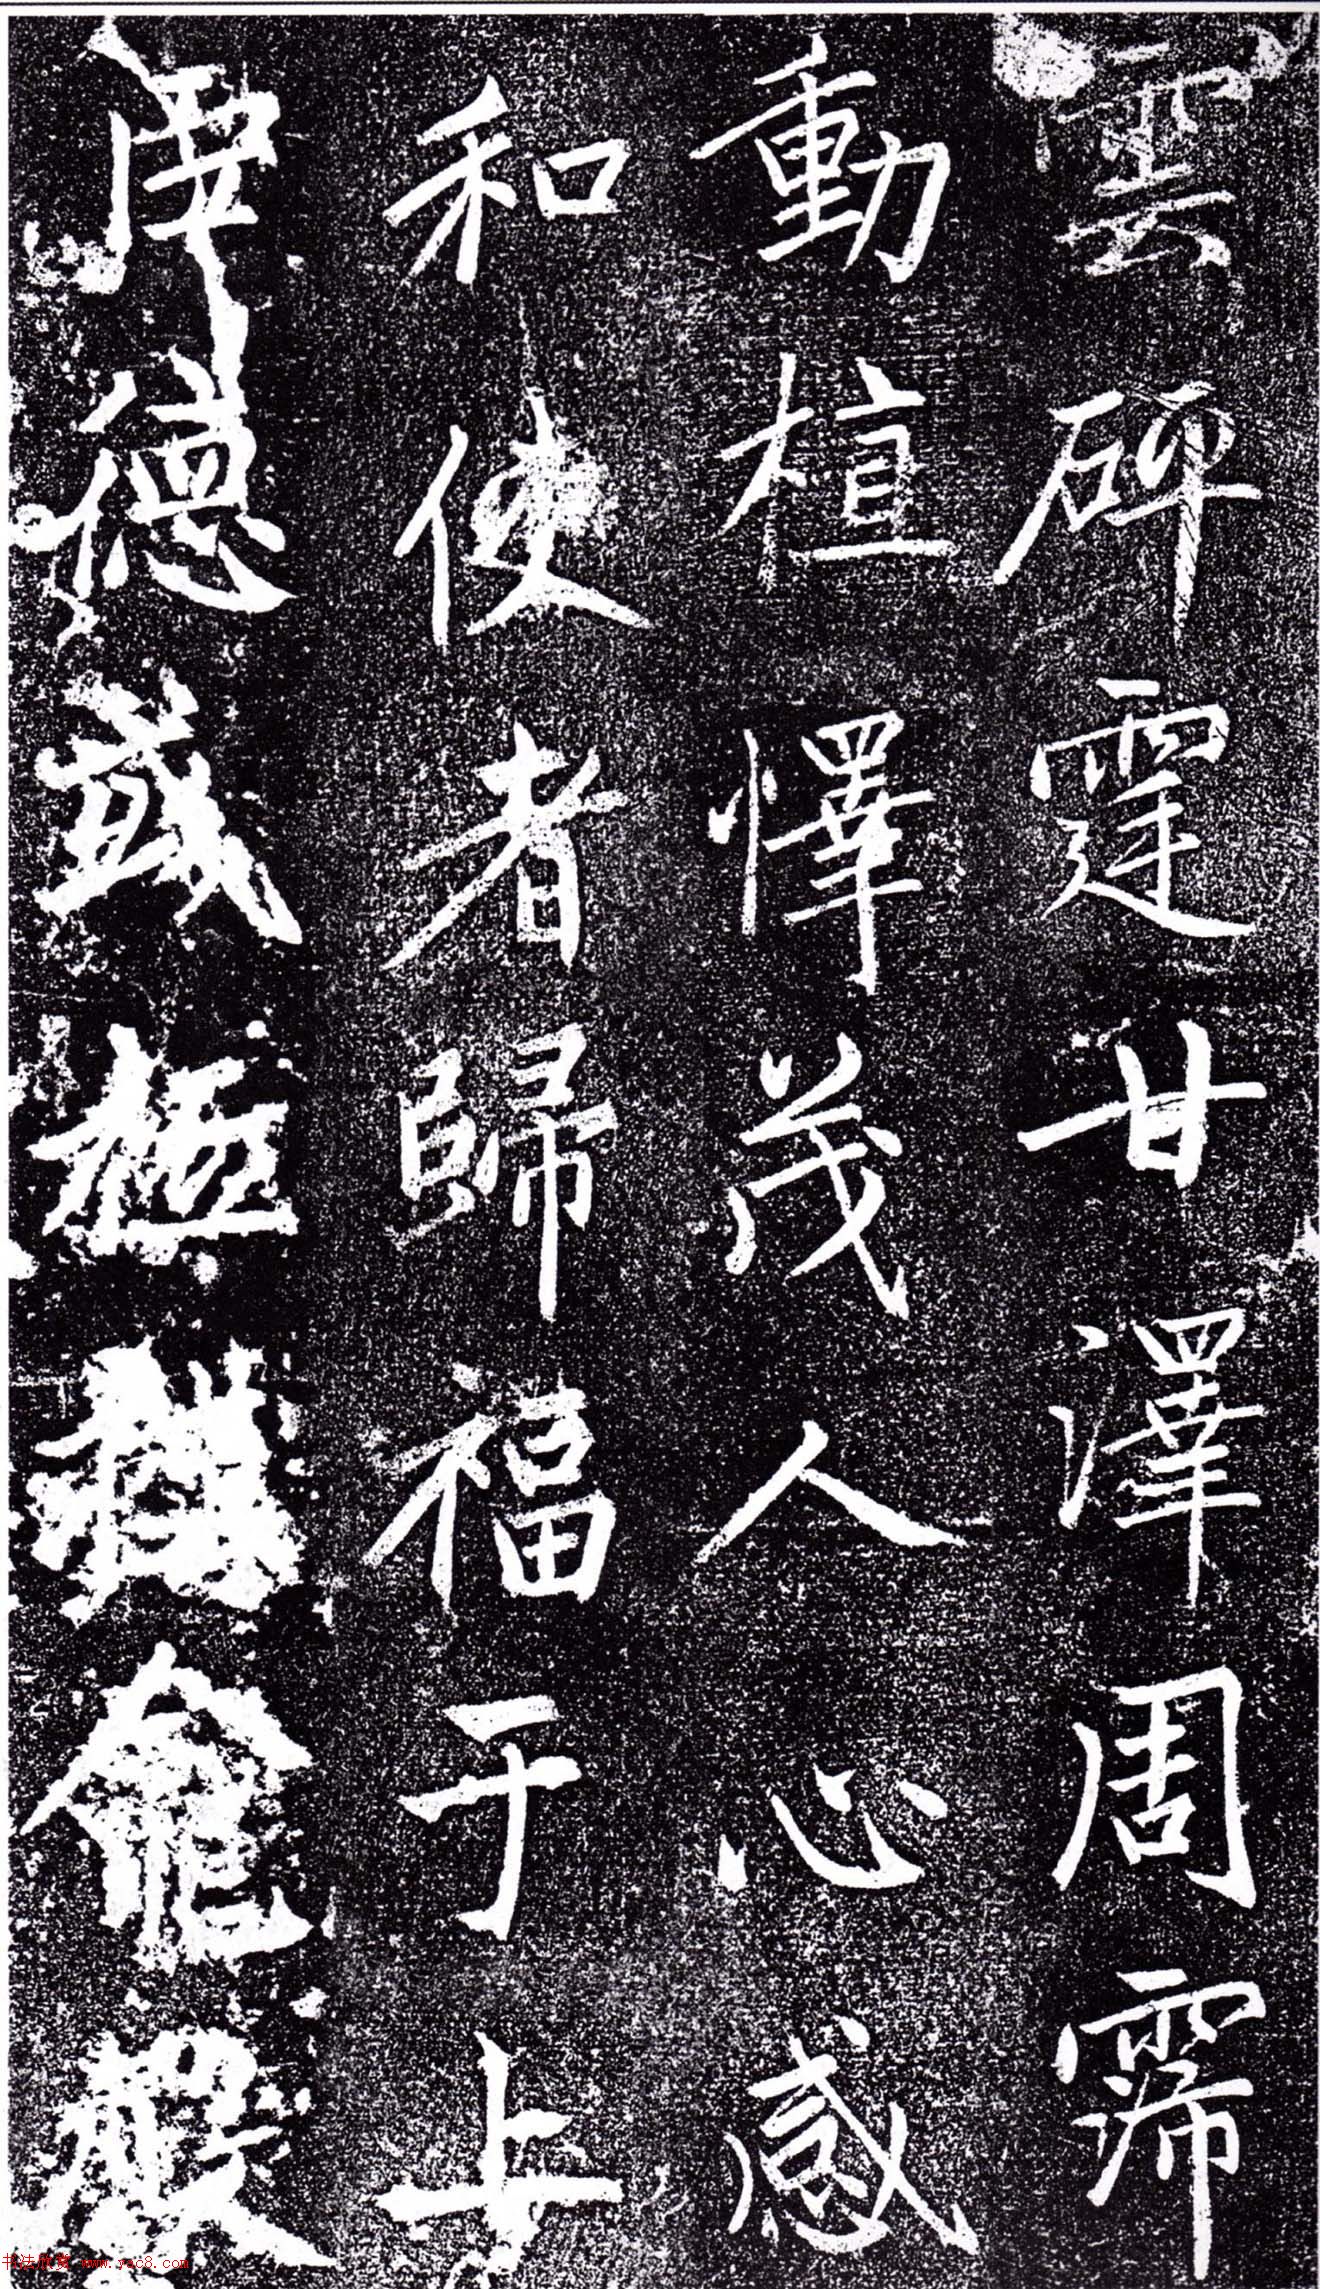 雲砰霆甘澤周霈
動植懌茂人心感
和使者歸福于上
庚德盛極龕
书法欣赏 www.yac8.com